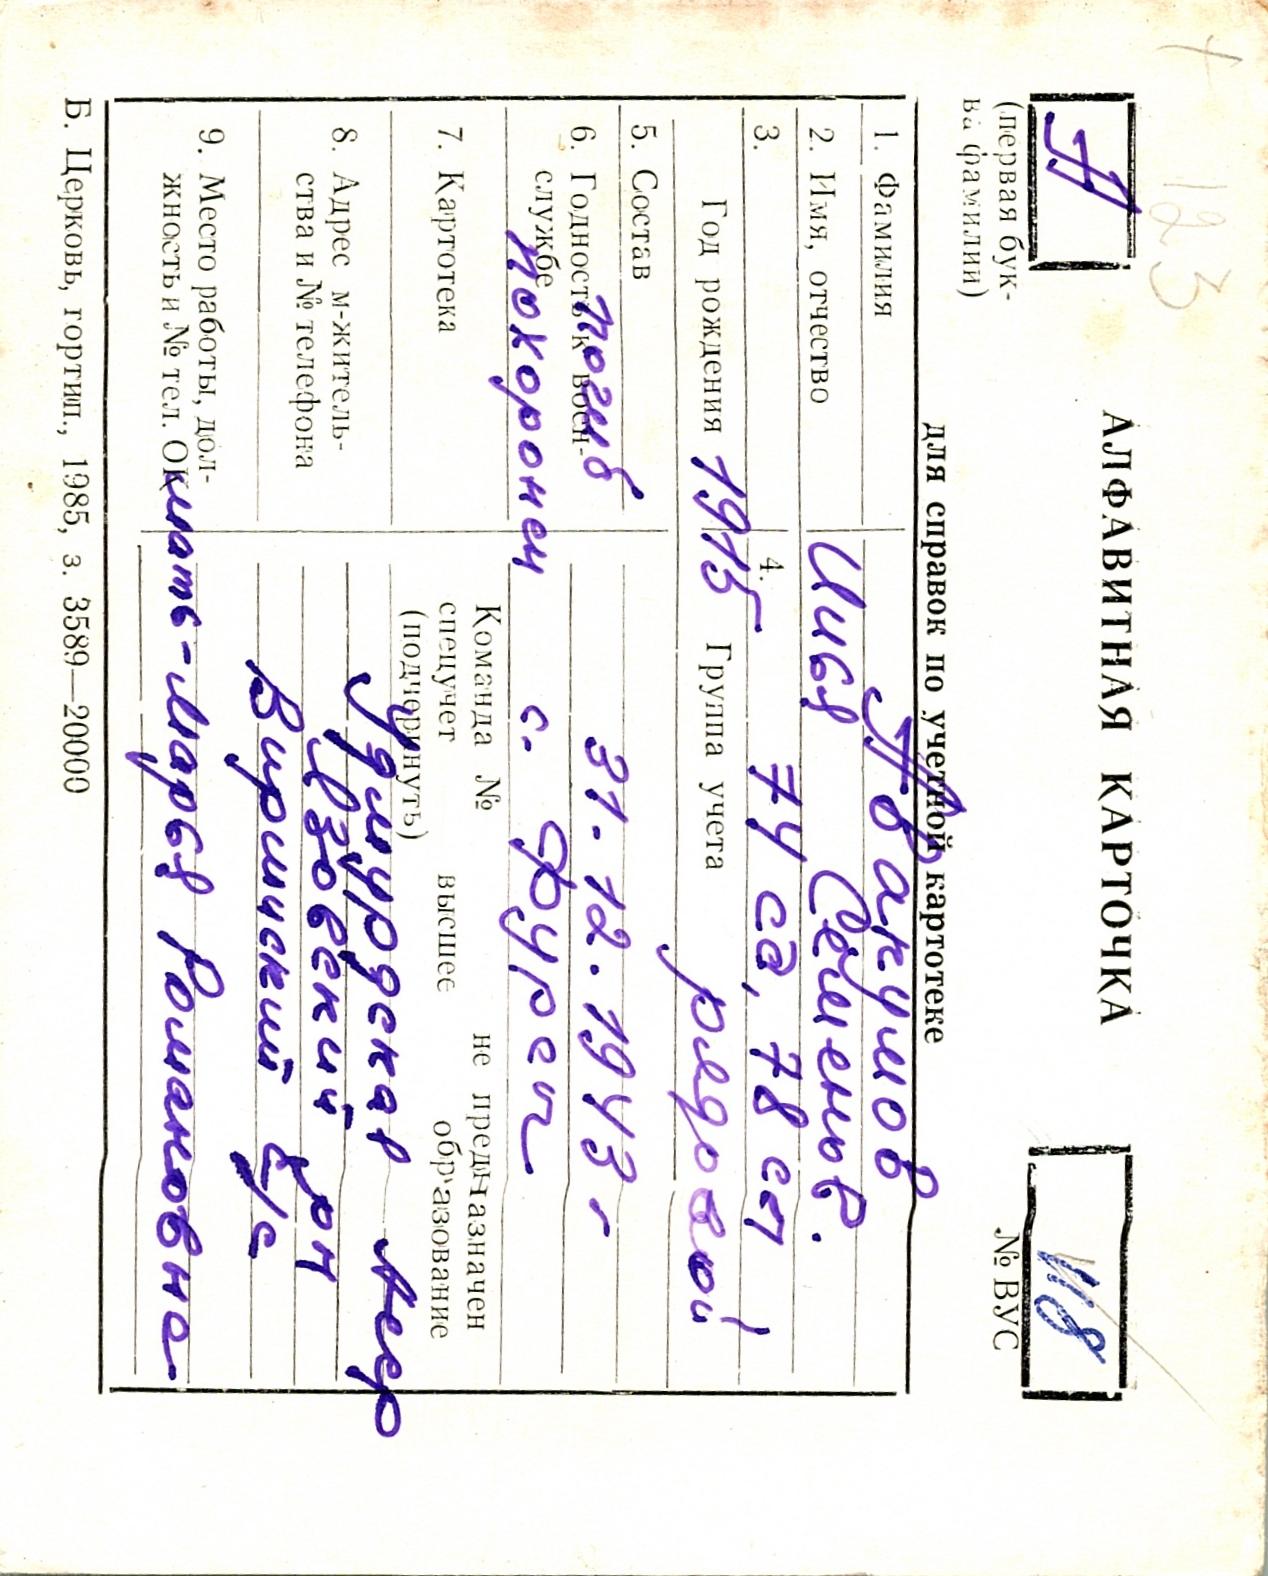 123
П
(первая бук-
ва фамилии)
АЛФАВИТНАЯ КАРТОЧКА
для справок по учетной картотеке
И8
№ ВУС
1. Фамилия Пакумов
2. Имя, отчество Илья Семенов.
3. 74 сд, 78 сп
4.
Год рождения 1915 Группа учета рядовой
5. Состав
6. Годность к воен-
службе
погиб 31.12.1943 г
похоронен с. Фурси
7. Картотека
Команда № не предназначен
спецучет высшее образование
(подчеркнуть)
8. Адрес м-житель-
ства и № телефона
Удмурдская Асср
Азовский рн
с/с
9. Место работы, дол-
жность и № тел. ОК
мать-Марья Романовна
Б. Церковь, гортип., 1985, з. 3589—20000